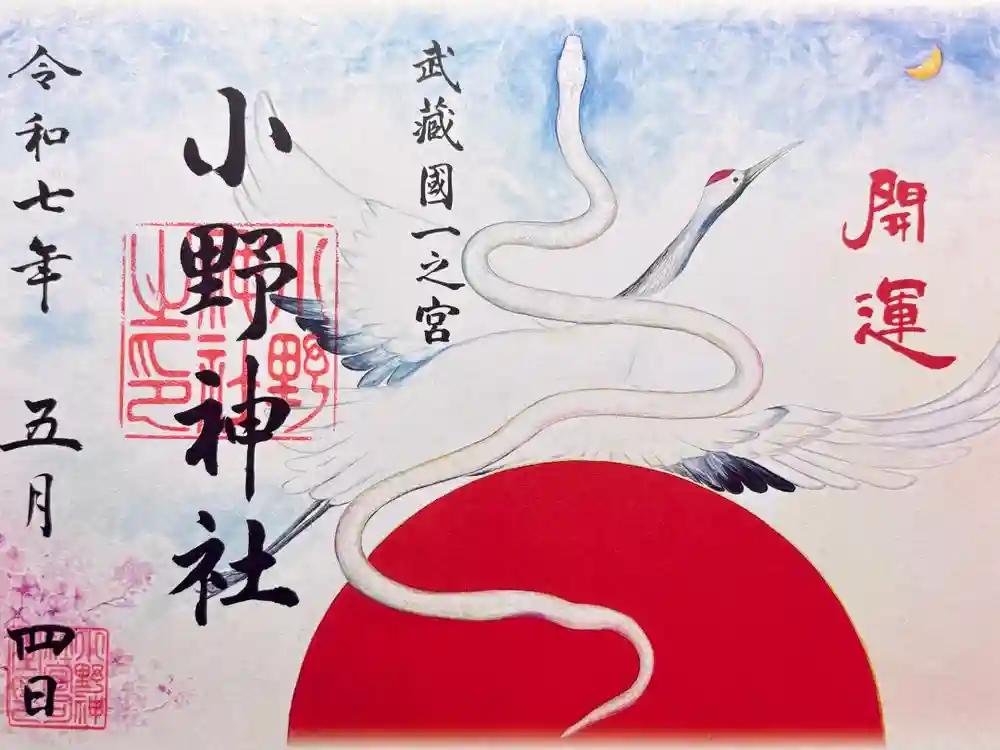 開運
武藏國一之宮
小野神社
小野
神社
之印
令和七年 五月 四日
小野神
社宮司